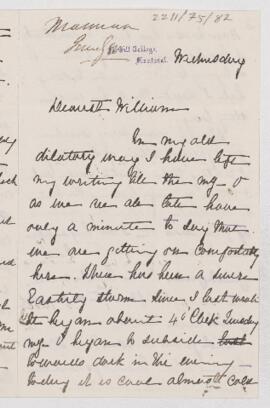 2211/75/82
Gill College,
Montreal.
Wednesday
Dearest William
In my old
dilatory way I have left
my writing till the mg -
as we are late have
only a minute to say that
we are getting on comfortably
here. There has been a severe
Easterly storm since I last wrote
It began about 4 O'Clock Tuesday
mg - began to subside
towards dark in the evening
today it is cool almost cold